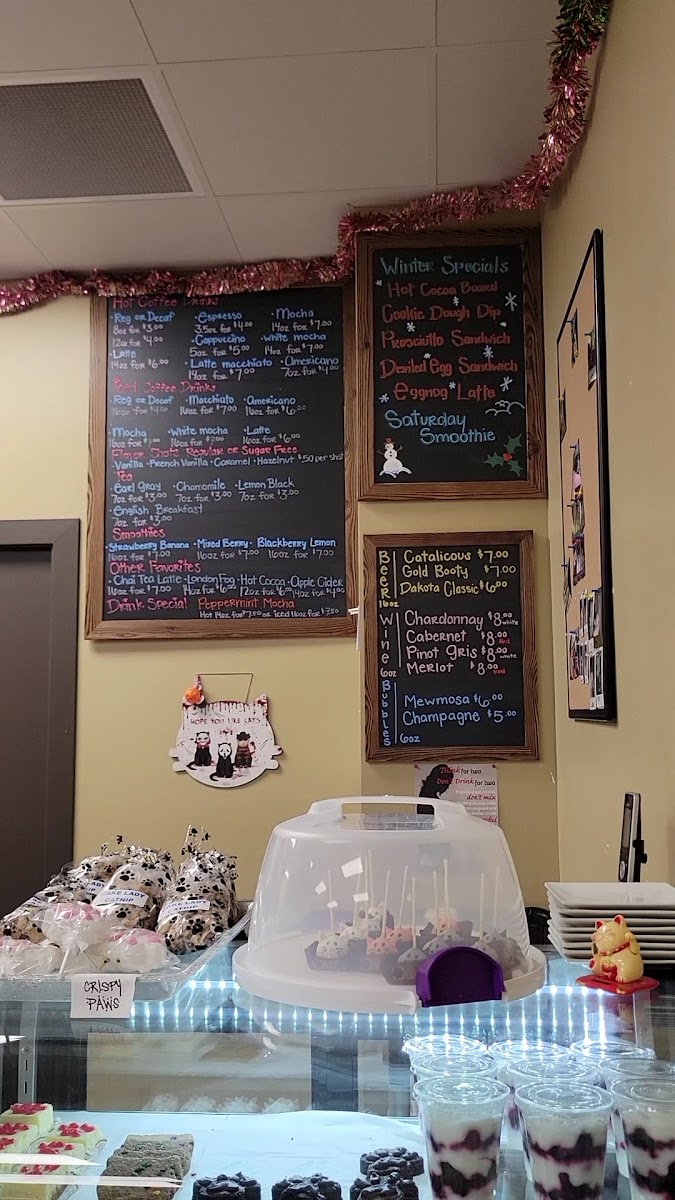 Hot Coffee Drinks
·Reg or Decaf ·Espresso ·Mocha
8oz for $3.00 3.5oz for $4.00 14oz for $7.00
12oz for $4.00 ·Cappuccino ·White mocha
·Latte 5oz for $5.00 14oz for $7.00
14oz for $6.00 ·Latte macchiato ·Americano
14oz for $7.00 7oz for $4.00
Iced Coffee Drinks
·Reg or Decaf ·Macchiato ·Americano
16oz for $4.00 16oz for $7.00 16oz for $6.00
·Mocha ·White mocha ·Latte
16oz for $7.00 16oz for $7.00 16oz for $6.00
Flavor Shots Regular or Sugar Free
·Vanilla ·French Vanilla ·Caramel ·Hazelnut $.50 per shot
Tea
·Earl Gray ·Chamomile ·Lemon Black
7oz for $3.00 7oz for $3.00 7oz for $3.00
·English Breakfast
7oz for $3.00
Smoothies
·Strawberry Banana ·Mixed Berry ·Blackberry Lemon
16oz for $7.00 16oz for $7.00 16oz for $7.00
Other Favorites
·Chai Tea Latte ·London Fog ·Hot Cocoa ·Apple Cider
16oz for $7.00 14oz for $6.00 12oz for $6.00 14oz for $4.00
Drink Special Peppermint Mocha
Hot 14oz for $7.50 or iced 16oz for $7.50
Winter Specials
Hot Cocoa Board
Cookie Dough Dip
Prosciutto Sandwich
Deviled Egg Sandwich
Eggnog Latte
Saturday
Smoothie
Beer
16oz
Catalicous $7.00
Gold Booty $7.00
Dakota Classic $6.00
Wine
6oz
Chardonnay $8.00 white
Cabernet $8.00 Red
Pinot Gris $8.00 white
Merlot $8.00 Red
Bubbles
6oz
Mewmosa $6.00
Champagne $5.00
HOPE YOU LIKE CATS
Think for two
Don't Drink for two
don't mix
CATNIP
CAKE LADY
CATNIP
CRISPY
PAWS